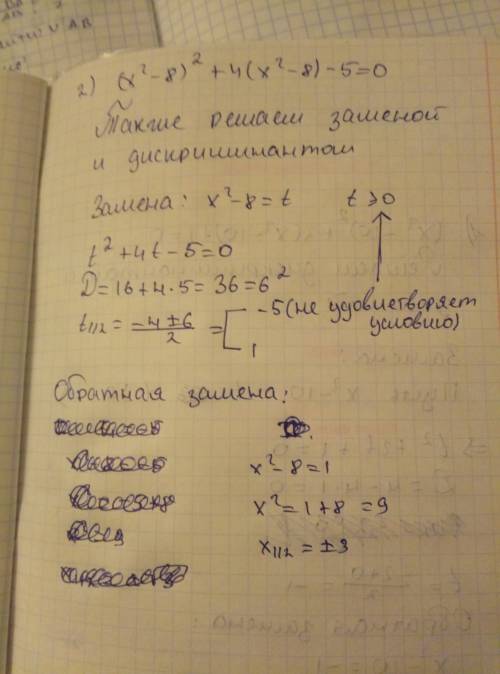 2) (x²-8)² +4(x²-8)-5=0
Такие решаем заменой
и дискриминантом
Замена: x²-8=t t≥0
t²+4t-5=0
D=16+4·5=36=6²
t₁,₂= (-4±6)/2 = [ -5 (не удовлетворяет
условию)
1
Обратная замена:
x²-8=1
x²=1+8=9
x₁,₂=±3